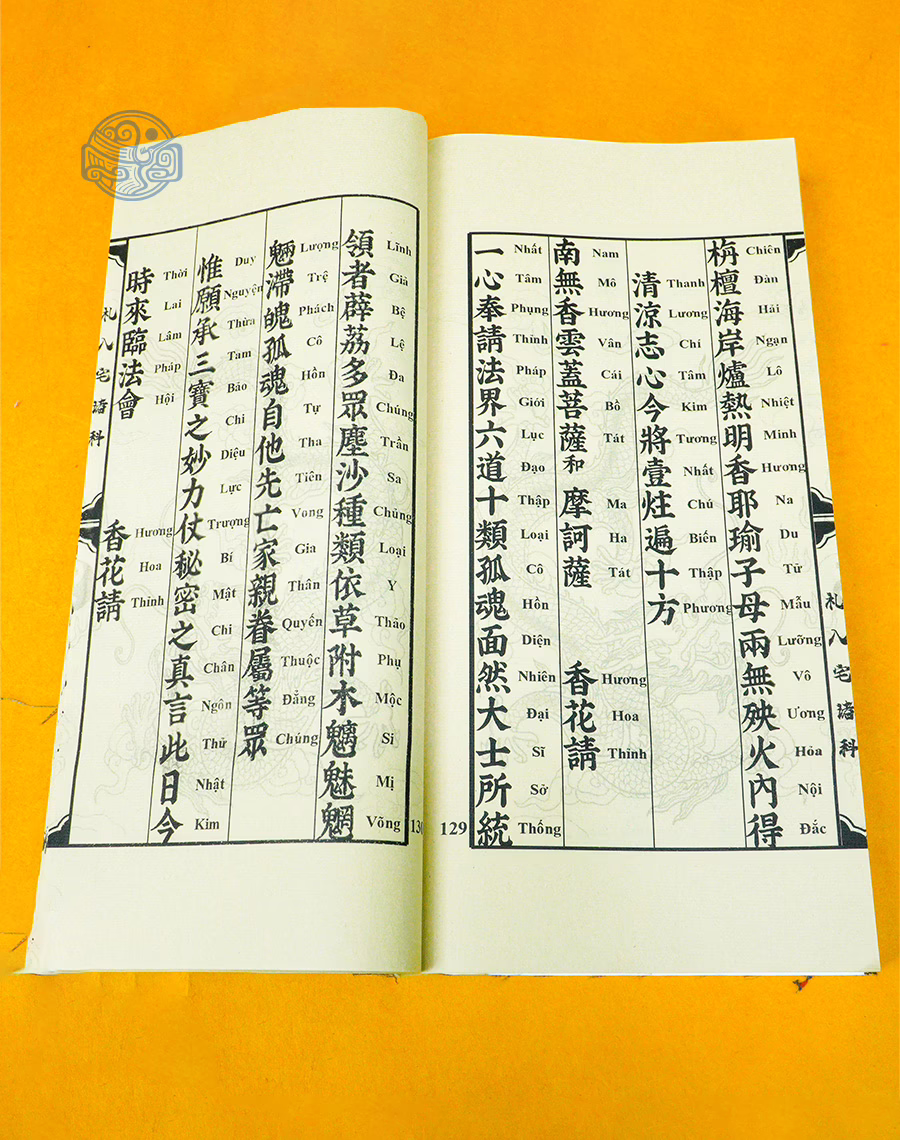 札八宅諸科
栴檀海岸爐熱明香耶瑜子母兩無殃火內得
Chiên Đàn Hải Ngạn Lô Nhiệt Minh Hương Na Du Tử Mẫu Lưỡng Vô Ương Hỏa Nội Đắc
清涼志心今將壹炷遍十方
Thanh Lương Chí Tâm Kim Tương Nhất Chú Biến Thập Phương
南無香雲蓋菩薩和 摩訶薩 香花請
Nam Mô Hương Vân Cái Bồ Tát Ma Ha Tát Hương Hoa Thỉnh
一心奉請法界六道十類孤魂面然大士所統
Nhất Tâm Phụng Thỉnh Pháp Giới Lục Đạo Thập Loại Cô Hồn Diện Nhiên Đại Sĩ Sở Thống
129
130
領者薜荔多眾塵沙種類依草附木魑魅魍
Lĩnh Giả Bệ Lệ Đa Chúng Trần Sa Chủng Loại Y Thảo Phụ Mộc Si Mị Võng
魎滯魄孤魂自他先亡家親眷屬等眾
Lượng Trệ Phách Cô Hồn Tự Tha Tiên Vong Gia Thân Quyến Thuộc Đẳng Chúng
惟願承三寶之妙力仗秘密之真言此日今
Duy Nguyện Thừa Tam Bảo Chi Diệu Lực Trượng Bí Mật Chi Chân Ngôn Thử Nhật Kim
時來臨法會 香花請
Thời Lai Lâm Pháp Hội Hương Hoa Thỉnh
札八宅諸科